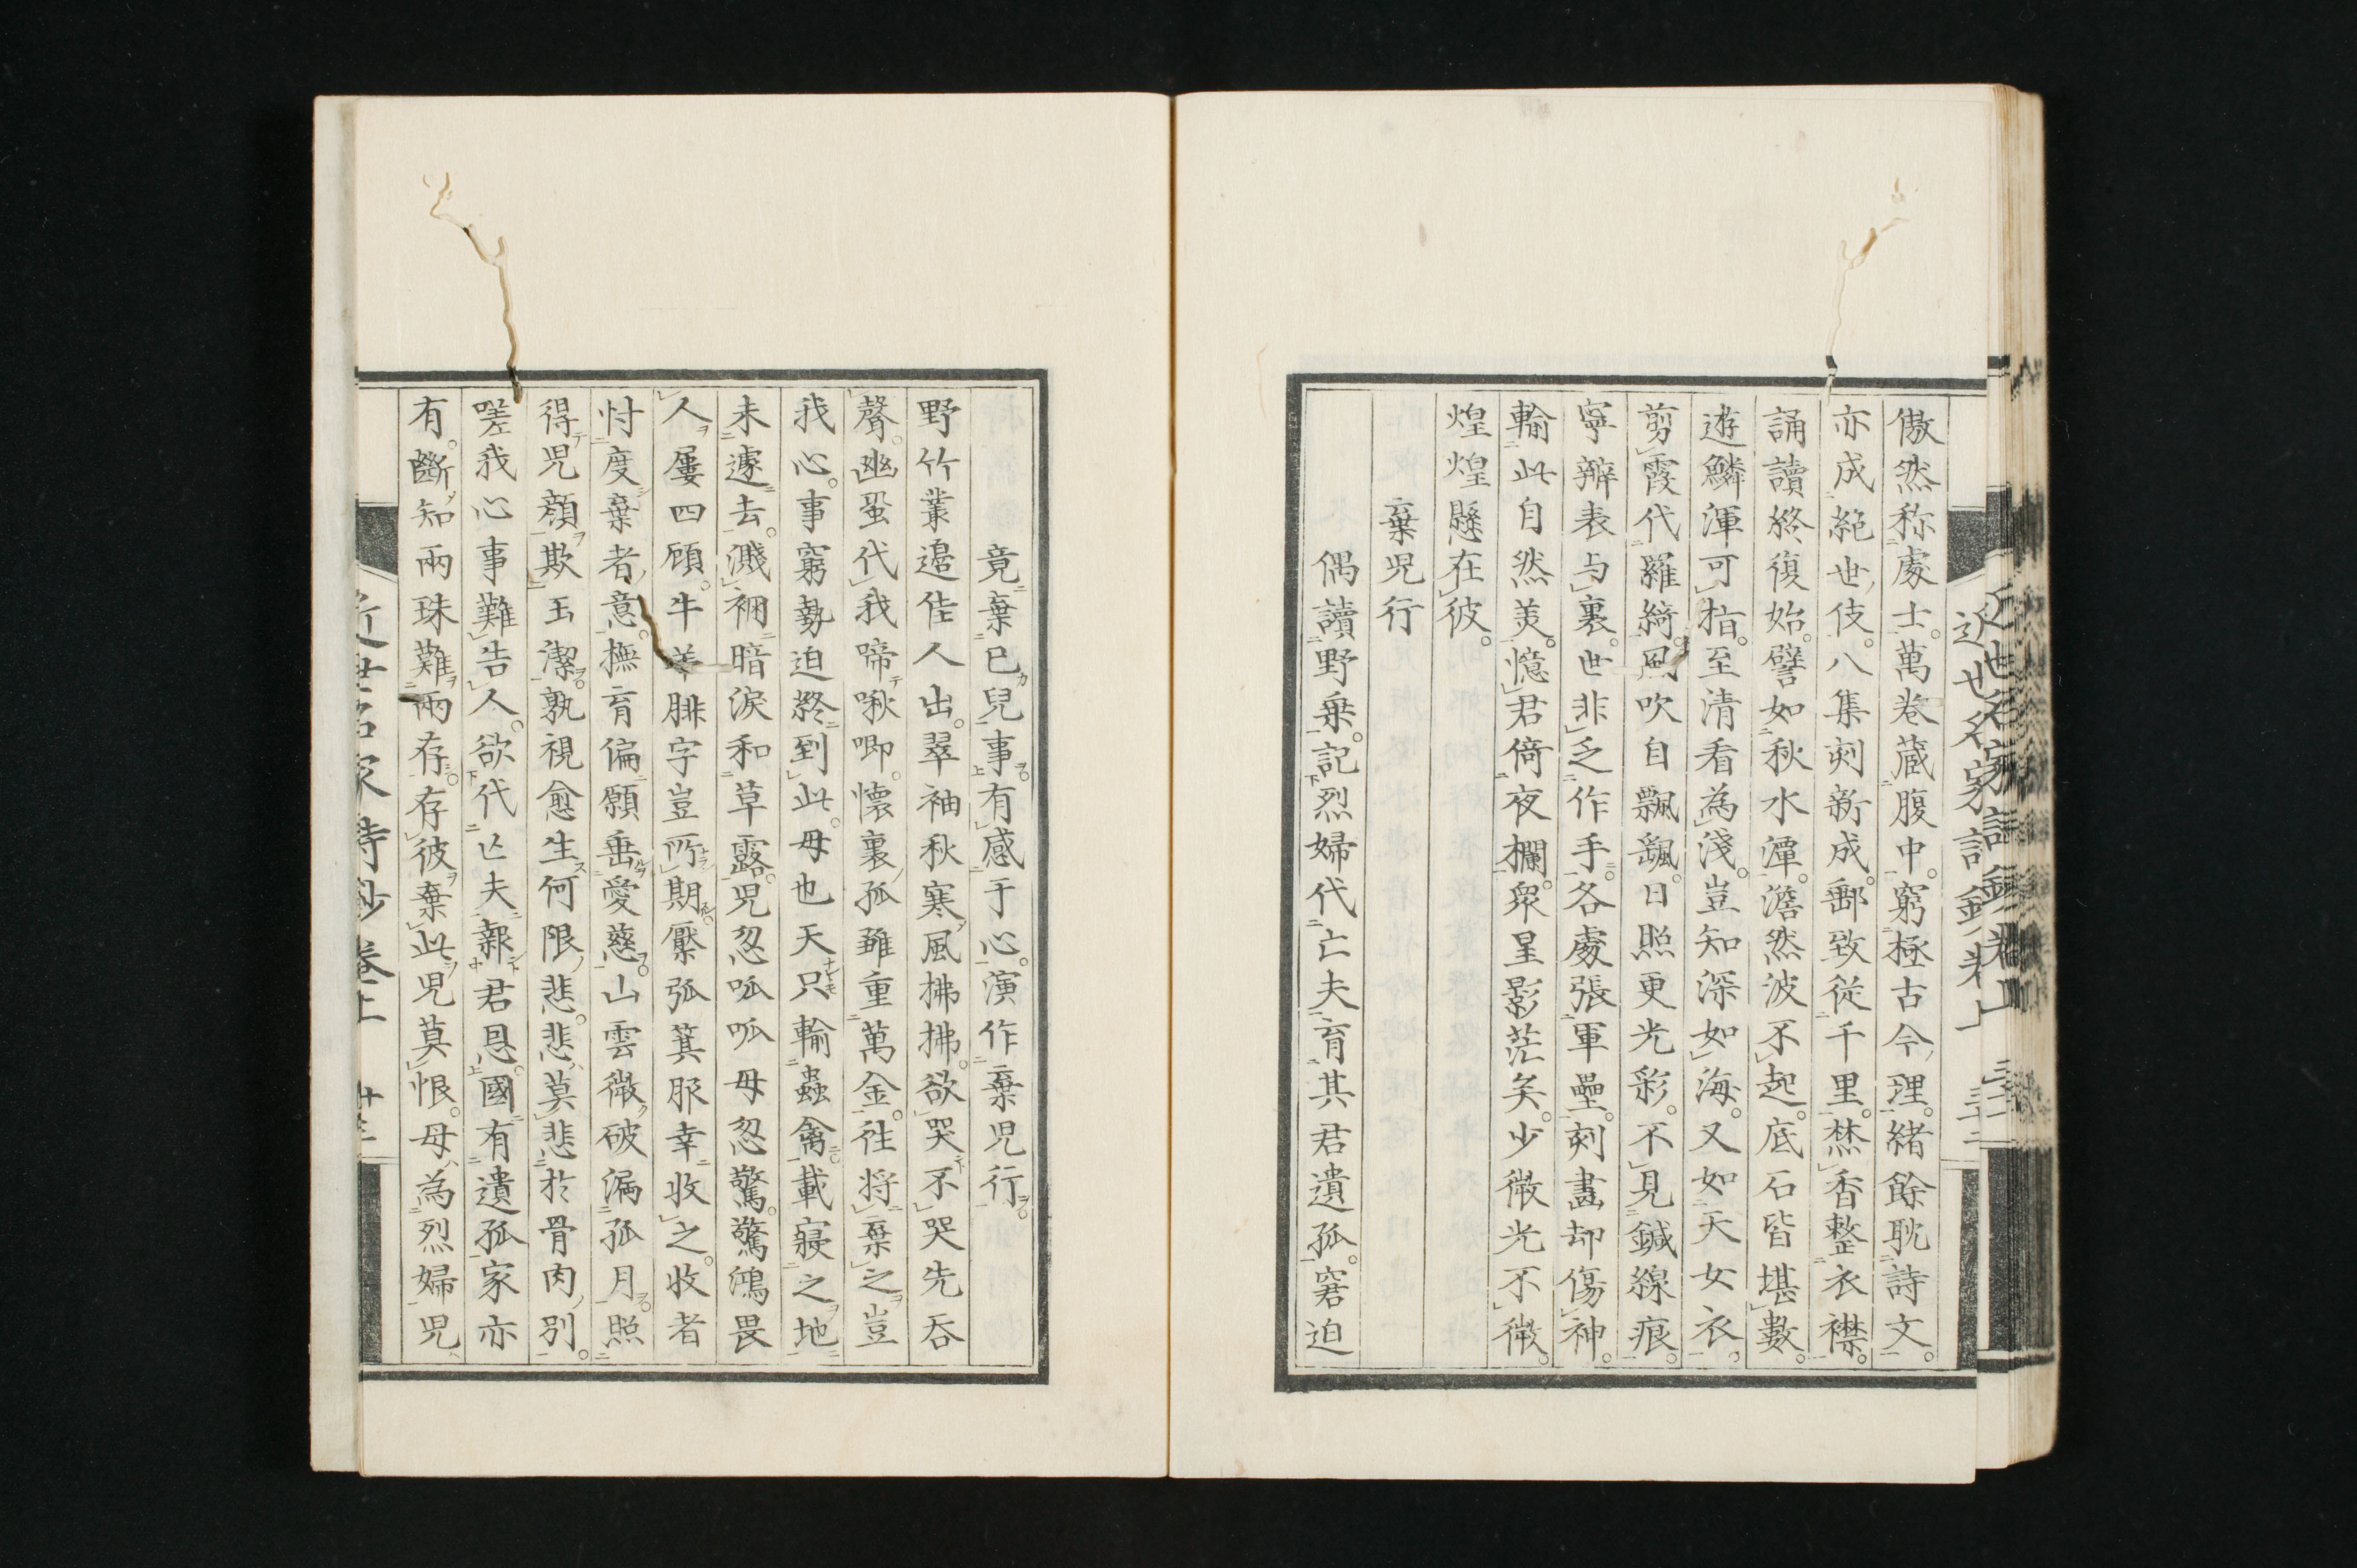 傲然称處士。萬卷蔵腹中。窮極古今理。緒餘耽詩文。
亦成絶世伎。八集刻新成。郵致従千里。焚香整衣襟。
誦讀終復始。譬如秋水潭。澹然波不起。底石皆堪數。
遊鱗渾可指。至清看為淺。豈知深如海。又如天女衣。
剪霞代羅綺。風吹自飄颻。日照更光彩。不見鍼線痕。
寧辨表与裏。世非乏作手。各處張軍壘。刻畫却傷神。
輸此自然美。憶君倚夜欄。衆星影茫矣。少微光不微。
煌煌懸在彼。
棄児行
偶讀野乗。記烈婦代亡夫育其君遺孤。窘迫
竟棄己兒事。有感于心。演作棄児行。
野竹叢邉佳人出。翠袖秋寒風拂拂。欲哭不哭先吞
聲。幽蛩代我啼啾唧。懐裏孤雖重萬金。往将棄之豈
我心。事窮勢迫終到此。母也天只輸蟲禽。載寢之地
未遽去。濺裀暗涙和草露。児忽呱呱母忽驚。驚鴻畏
人屢四顧。牛羊腓字豈所期。檿弧箕服幸收之。收者
忖度棄者意。撫育偏願垂愛慈。山雲微破漏孤月。照
得児顔欺玉潔。孰視愈生何限悲。悲莫悲於骨肉別。
嗟我心事難告人。欲代亡夫報君恩。國有遺孤家亦
有。斷知兩珠難兩存。存彼棄此児莫恨。母為烈婦児
近世名家詩鈔卷上